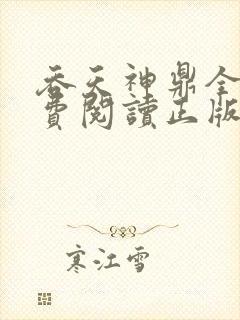 吞天神鼎全
費閱讀正版
寒江雪